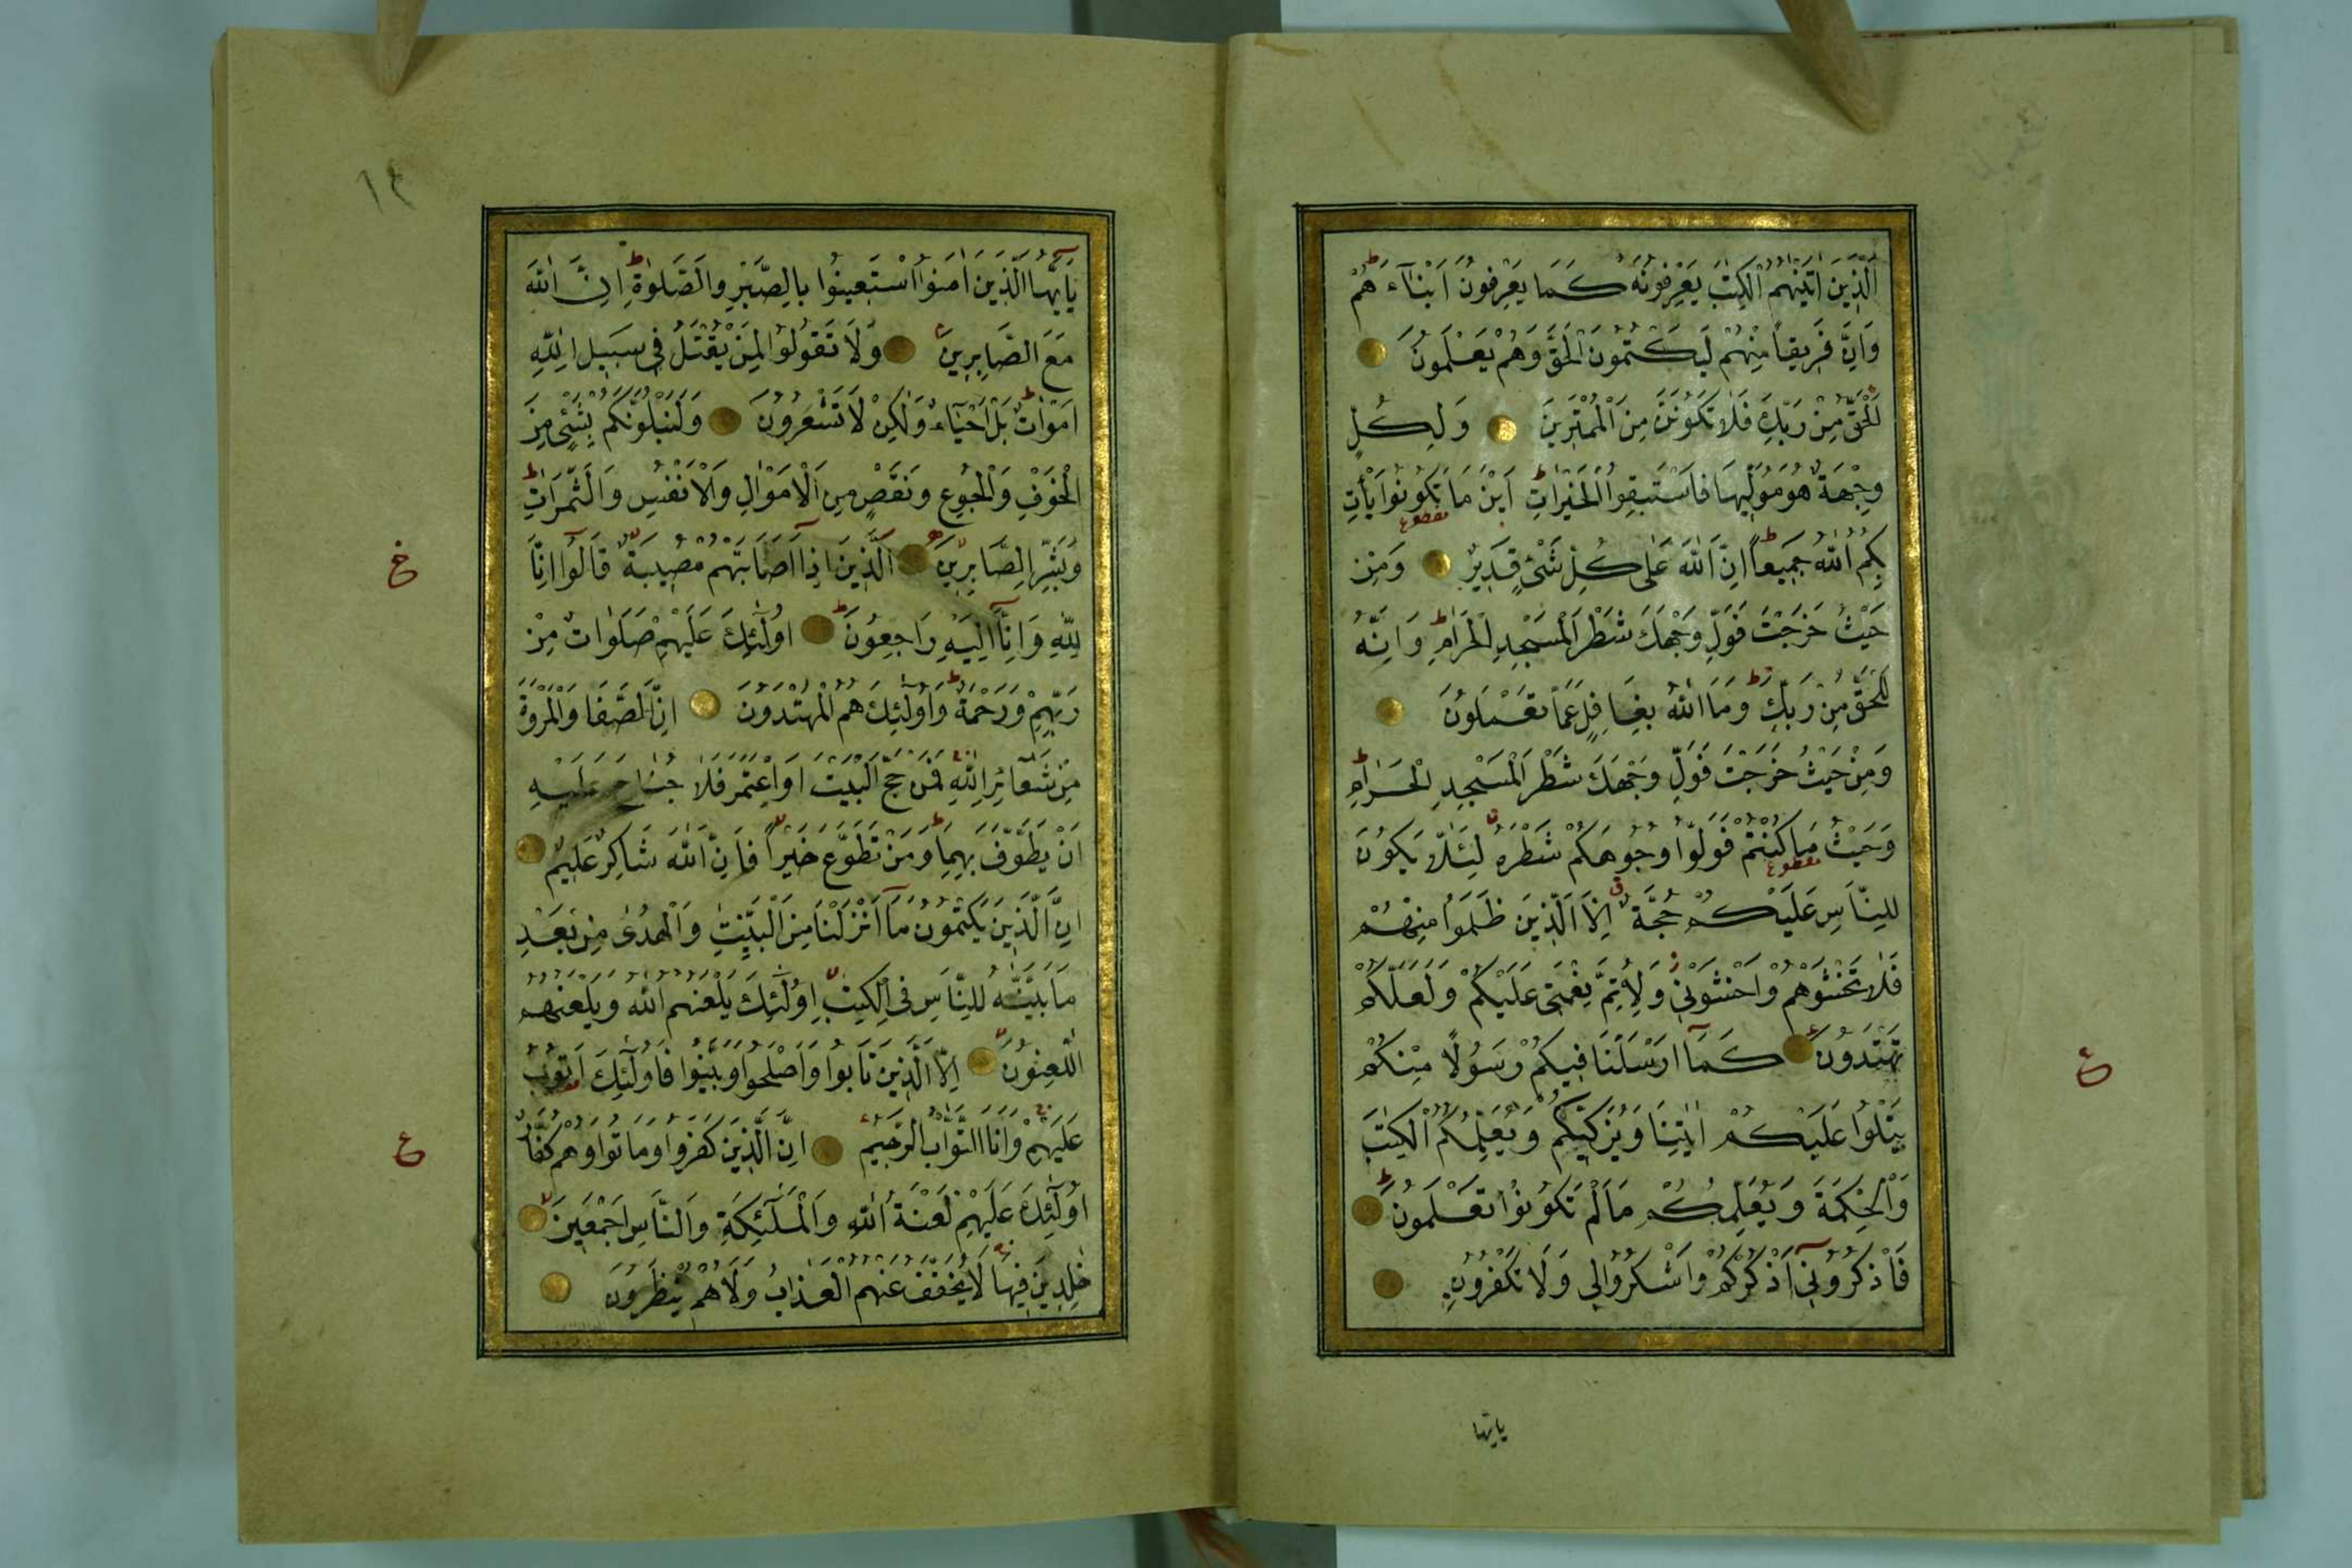 اَلَّذِينَ اٰتَيْنٰهُمُ الْكِتٰبَ يَعْرِفُونَهُ كَمَا يَعْرِفُونَ اَبْنَآءَهُمْ
وَاِنَّ فَرِيقاً مِنْهُمْ لَيَكْتُمُونَ الْحَقَّ وَهُمْ يَعْلَمُونَ
اَلْحَقُّ مِنْ رَبِّكَ فَلَا تَكُونَنَّ مِنَ الْمُمْتَرِينَ وَلِكُلٍّ
وِجْهَةٌ هُوَ مُوَلِّيهَا فَاسْتَبِقُوا الْخَيْرَاتِ اَيْنَ مَا تَكُونُوا يَأْتِ
مقطوع
بِكُمُ اللّٰهُ جَمِيعاً اِنَّ اللّٰهَ عَلٰى كُلِّ شَىْءٍ قَدِيرٌ وَمِنْ
حَيْثُ خَرَجْتَ فَوَلِّ وَجْهَكَ شَطْرَ الْمَسْجِدِ الْحَرَامِ وَاِنَّهُ
لَلْحَقُّ مِنْ رَبِّكَ وَمَا اللّٰهُ بِغَافِلٍ عَمَّا تَعْمَلُونَ
وَمِنْ حَيْثُ خَرَجْتَ فَوَلِّ وَجْهَكَ شَطْرَ الْمَسْجِدِ الْحَرَامِ
وَحَيْثُ مَا كُنْتُمْ فَوَلُّوا وُجُوهَكُمْ شَطْرَهُ لِئَلَّا يَكُونَ
مقطوع
لِلنَّاسِ عَلَيْكُمْ حُجَّةٌ اِلَّا الَّذِينَ ظَلَمُوا مِنْهُمْ
فَلَا تَخْشَوْهُمْ وَاخْشَوْنِى وَلِاُتِمَّ نِعْمَتِى عَلَيْكُمْ وَلَعَلَّكُمْ
تَهْتَدُونَ كَمَآ اَرْسَلْنَا فِيكُمْ رَسُولًا مِنْكُمْ
يَتْلُوا عَلَيْكُمْ اٰيٰتِنَا وَيُزَكِّيكُمْ وَيُعَلِّمُكُمُ الْكِتٰبَ
وَالْحِكْمَةَ وَيُعَلِّمُكُمْ مَا لَمْ تَكُونُوا تَعْلَمُونَ
فَاذْكُرُونِىٓ اَذْكُرْكُمْ وَاشْكُرُوا لِى وَلَا تَكْفُرُونِ
ع
يايها
١٢
يَآ اَيُّهَا الَّذِينَ اٰمَنُوا اسْتَعِينُوا بِالصَّبْرِ وَالصَّلٰوةِ اِنَّ اللّٰهَ
مَعَ الصَّابِرِينَ وَلَا تَقُولُوا لِمَنْ يُقْتَلُ فِى سَبِيلِ اللّٰهِ
اَمْوَاتٌ بَلْ اَحْيَآءٌ وَلٰكِنْ لَا تَشْعُرُونَ وَلَنَبْلُوَنَّكُمْ بِشَىْءٍ مِنَ
الْخَوْفِ وَالْجُوعِ وَنَقْصٍ مِنَ الْاَمْوَالِ وَالْاَنْفُسِ وَالثَّمَرَاتِ
وَبَشِّرِ الصَّابِرِينَ اَلَّذِينَ اِذَآ اَصَابَتْهُمْ مُصِيبَةٌ قَالُوا اِنَّا
لِلّٰهِ وَاِنَّآ اِلَيْهِ رَاجِعُونَ اُولٰٓئِكَ عَلَيْهِمْ صَلَوَاتٌ مِنْ
رَبِّهِمْ وَرَحْمَةٌ وَاُولٰٓئِكَ هُمُ الْمُهْتَدُونَ اِنَّ الصَّفَا وَالْمَرْوَةَ
مِنْ شَعَآئِرِ اللّٰهِ فَمَنْ حَجَّ الْبَيْتَ اَوِ اعْتَمَرَ فَلَا جُنَاحَ عَلَيْهِ
اَنْ يَطَّوَّفَ بِهِمَا وَمَنْ تَطَوَّعَ خَيْراً فَاِنَّ اللّٰهَ شَاكِرٌ عَلِيمٌ
اِنَّ الَّذِينَ يَكْتُمُونَ مَآ اَنْزَلْنَا مِنَ الْبَيِّنٰتِ وَالْهُدٰى مِنْ بَعْدِ
مَا بَيَّنَّاهُ لِلنَّاسِ فِى الْكِتٰبِ اُولٰٓئِكَ يَلْعَنُهُمُ اللّٰهُ وَيَلْعَنُهُمُ
اللّٰعِنُونَ اِلَّا الَّذِينَ تَابُوا وَاَصْلَحُوا وَبَيَّنُوا فَاُولٰٓئِكَ اَتُوبُ
عَلَيْهِمْ وَاَنَا التَّوَّابُ الرَّحِيمُ اِنَّ الَّذِينَ كَفَرُوا وَمَاتُوا وَهُمْ كُفَّارٌ
اُولٰٓئِكَ عَلَيْهِمْ لَعْنَةُ اللّٰهِ وَالْمَلٰٓئِكَةِ وَالنَّاسِ اَجْمَعِينَ
خٰلِدِينَ فِيهَا لَا يُخَفَّفُ عَنْهُمُ الْعَذَابُ وَلَا هُمْ يُنْظَرُونَ
ع